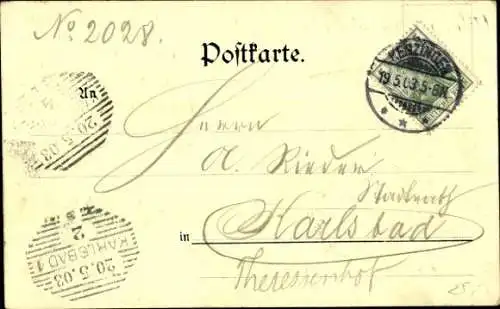 No 2028.
Postkarte.
KENZINGEN
19.5.03.5-6N.
An
20.5.03
Herrn
A. Rieder
Stadtrath
in Karlsbad
Theresienhof
2
KARLSBAD 1
20.5.03
25.